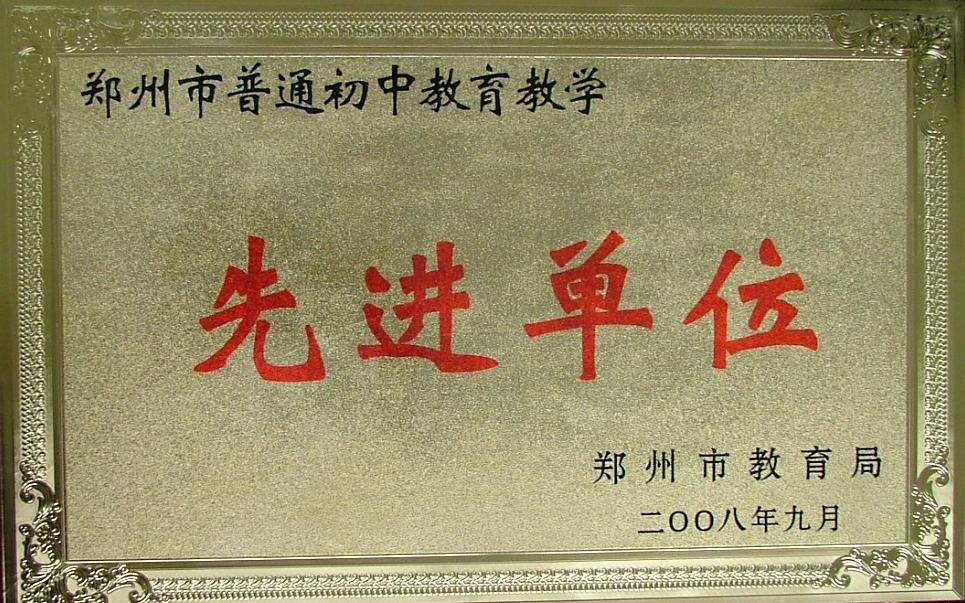 郑州市普通初中教育教学
先进单位
郑州市教育局
二OO八年九月